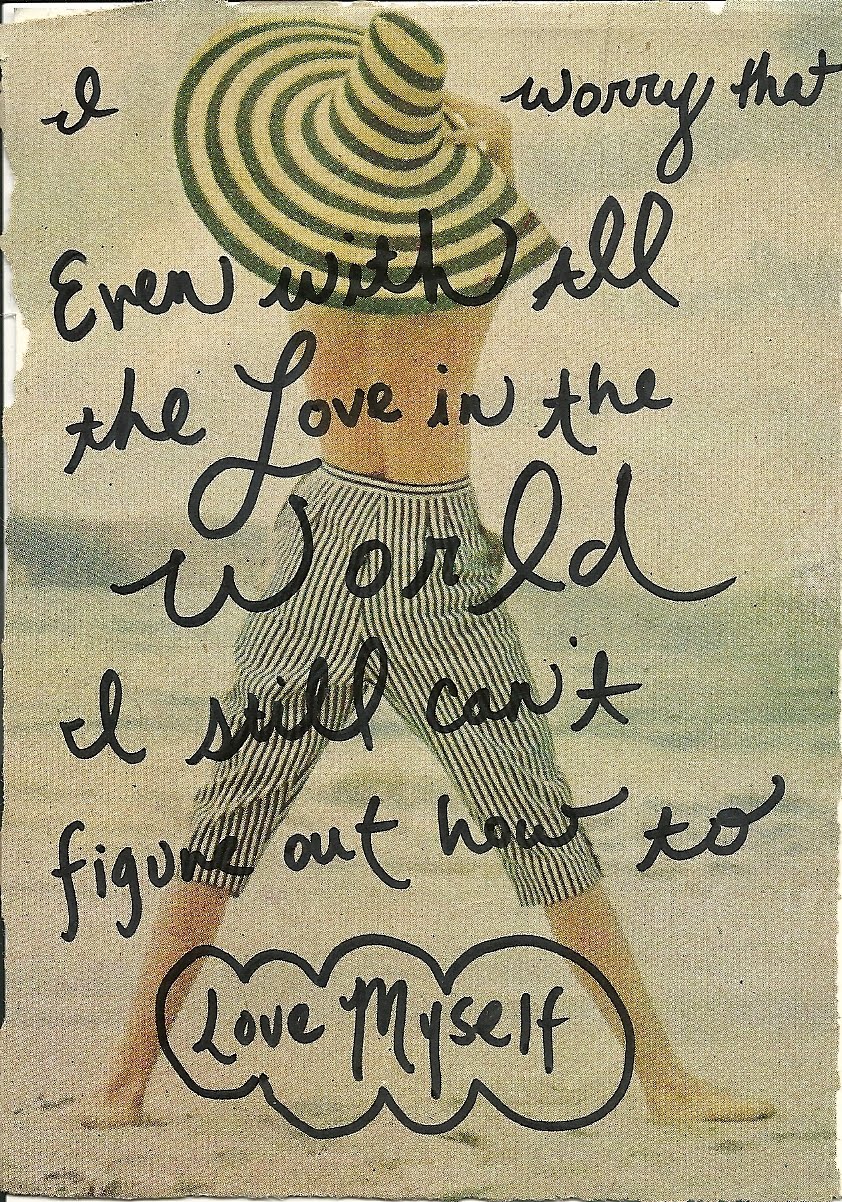 I worry that
Even with all
the Love in the
World
I still can't
figure out how to
Love Myself